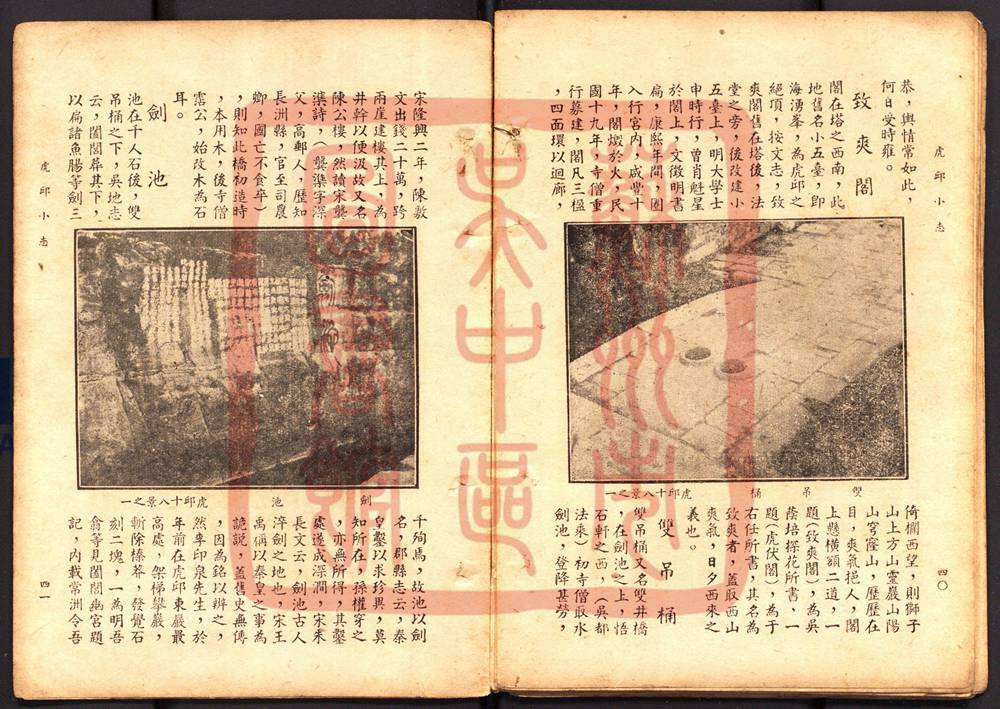 虎邱小志
恭，輿情常如此，
何日受時雍。
致爽閣
閣在塔之西南，此
地舊名小五臺，即
海湧峯，為虎邱之
絕頂，按文志，致
爽閣舊在塔後，法
堂之旁，後改建小
五臺上，明大學士
申時行，曾肖魁星
於閣上，文徵明書
扁，康熙年間，圈
入行宮內，咸豐十
年，閣燬於火，民
國十九年，寺僧重
行募建，閣凡三楹
，四面環以迴廊，
雙吊桶
虎邱十八景之一
倚欄西望，則獅子
山上方山靈巖山陽
山穹窿山，歷歷在
目，爽氣挹人，閣
上懸橫額二道，一
題(致爽閣)，為吳
蔭培探花所書，一
題(虎伏閣)，為于
右任所書，其名為
致爽者，蓋取西山
爽氣，日夕西來之
義也。
雙吊桶
雙吊桶又名雙井橋
，在劍池之上，悟
石軒之西，(吳都
法乘)初寺僧取水
劍池，登降甚勞，
四〇
虎邱小志
宋隆興二年，陳敷
文出錢二十萬，跨
兩崖建樓其上，為
井幹以便汲故又名
陳公樓，然讀宋龔
詩，(龔字深
父，高郵人，歷知
長洲縣，官至司農
卿，國亡不食卒)
，則知此橋初造時
，本用木，後寺僧
公，始改木為石
耳。
劍池
池在千人石後，雙
吊桶之下，吳地志
云，闔閭葬其下，
以扁諸魚腸等劍三
劍池
虎邱十八景之一
千殉焉，故池以劍
名，郡縣志云，秦
皇鑿以求珍異，莫
知所在，孫權穿之
，亦無所得，其鑿
處遂成深澗，宋朱
長文云，劍池古人
淬劍之地也，宋王
禹偁以秦皇之事為
詭說，蓋舊史無傳
，因為銘以辨之，
然尊印泉先生，於
年前在虎邱東嚴最
高處，架梯攀巖，
斬除榛莽，發覺石
刻二塊，一為明吾
翕等見闔閭幽宮題
記，內載常洲令吾
四一
蘇州市
吳中區
圖書館